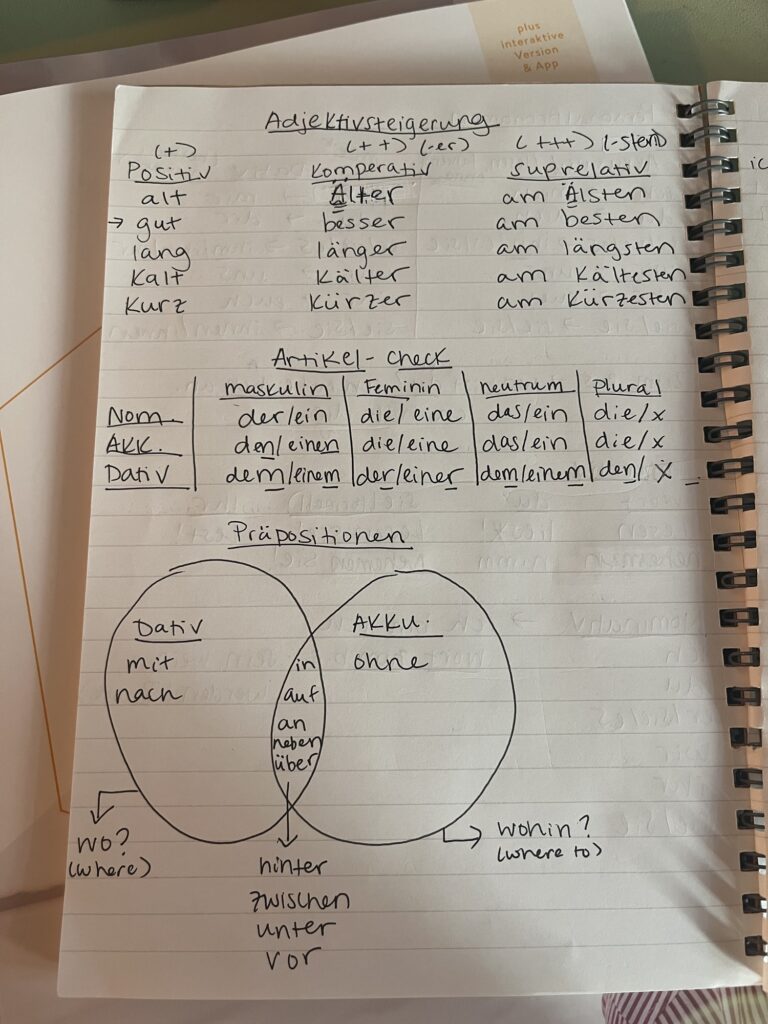 plus
Interaktive
Version
& App
Adjektivsteigerung
(+) (++) (-er) (+++) (-sten)
Positiv Komperativ Suprelativ
alt Älter am Älsten
→ gut besser am besten
lang länger am längsten
kalt Kälter am Kältesten
kurz Kürzer am Kürzesten
Artikel - Check
maskulin Feminin neutrum plural
Nom. der/ein die/eine das/ein die/x
AKK. den/einen die/eine das/ein die/x
Dativ dem/einem der/einer dem/einem den/x
Präpositionen
Dativ AKKU.
mit in ohne
nach auf
an
neben
über
wo? wohin?
(where) (where to)
hinter
zwischen
unter
vor